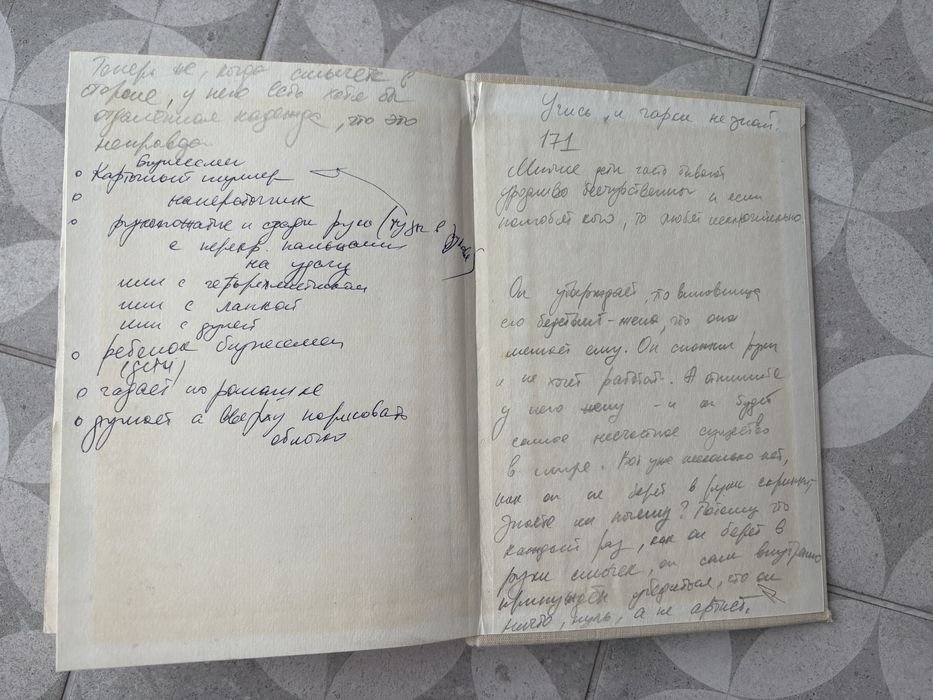 Теперь же, когда смычек в
стороне, у него есть хотя бы
отдаленная надежда, что это
неправда
Бизнесмен
Карточный шулер
наперсточник
рукопожатие и сзади рука (
с перекр. пальцами
на удачу
или с четырехлистником
или с лапкой
или с дулей
ребенок бизнесмен
(дети)
гадает по ромашке
думает а вверху нарисовать
облачко
Учись и горя не знай.
171
Милые дети часто бывают
уродливо бесчувственны и если
полюбят кого, то любят исключительно
Он утверждает, что виновница
его бедствий - жена, что она
мешает ему. Он сложил руки
и не хочет работать. А отнимите
у него жену - и он будет
самое несчастное существо
в мире. Вот уже несколько лет,
как он не берет в руки скрипки,
знаете ли почему? Потому что
каждый раз, как он берет в
руки смычек, он сам внутренно
принужден убедиться, что он
ничто, нуль, а не артист.